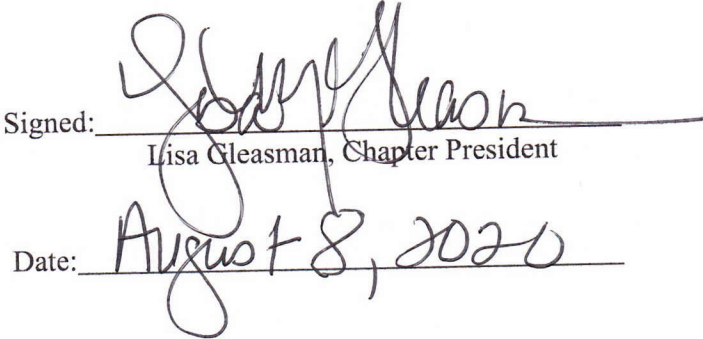 Signed:
Lisa Gleasman, Chapter President
Date: August 8, 2020